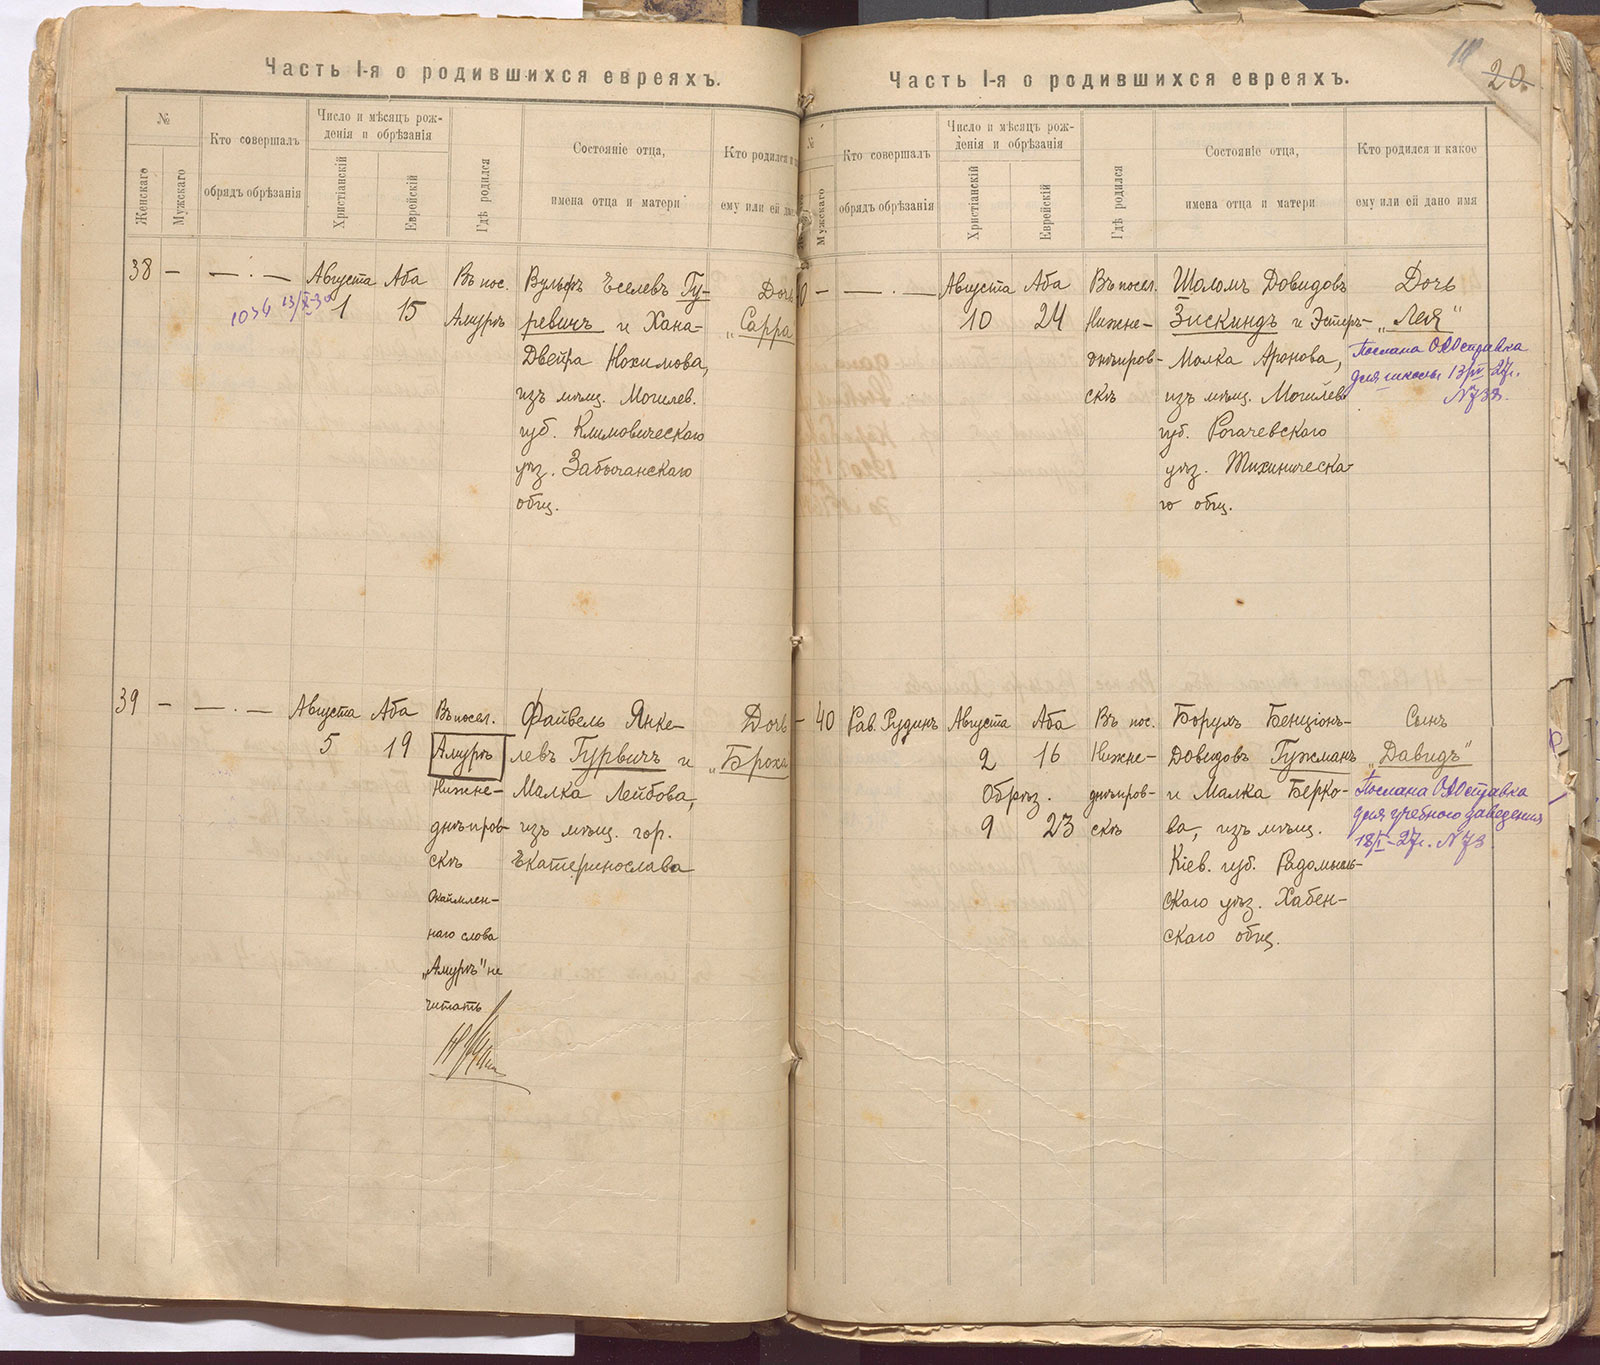 Часть I-я о родившихся евреяхъ.
№
Женскаго
Мужскаго
Кто совершалъ
обрядъ обрѣзанія
Число и мѣсяцъ рож-
денія и обрѣзанія
Христіанскій
Еврейскій
Гдѣ родился
Состояніе отца,
имена отца и матери
Кто родился и
ему или ей дано
38 — — . — Августа Аба Въ пос. Вульфъ Еселевъ Гу- Дочь
1034 13/X-30 1 15 Амуръ ревичъ и Хана- „Сарра
Двейра Нохимова,
изъ мѣщ. Могилев.
губ. Климовическаго
уѣз. Забычанскаго
общ.
39 — — . — Августа Аба Въ посел. Файвель Янке- Дочь
5 19 Амуръ левъ Гурвичъ и „Броха
Нижне- Малка Лейбова,
днѣпров- изъ мѣщ. гор.
скъ Екатеринослава
Окаймлен-
наго слова
„Амуръ" не
читать
Часть I-я о родившихся евреяхъ.
20.
№
Мужскаго
Кто совершалъ
обрядъ обрѣзанія
Число и мѣсяцъ рож-
денія и обрѣзанія
Христіанскій
Еврейскій
Гдѣ родился
Состояніе отца,
имена отца и матери
Кто родился и какое
ему или ей дано имя
0 — — . — Августа Аба Въ посел. Шоломъ Довидовъ Дочь
10 24 Нижне- Зискиндъ и Эстеръ- „Лея"
днѣпров- Малка Аронова,
скъ изъ мѣщ. Могилев.
губ. Рогачевскаго
уѣз. Тихиническа-
го общ.
Послана
для школы
— 40 Рав. Рудинъ Августа Аба Въ пос. Борухъ Бенціонъ- Сынъ
2 16 Нижне- Довидовъ Гужманъ „Давидъ"
Обрѣз. днѣпров- и Малка Берко-
9 23 скъ ва, изъ мѣщ.
Кіев. губ. Радомысль-
скаго уѣз. Хабен-
скаго общ.
Послана
для учебного заведения
18/I-27г. N 73